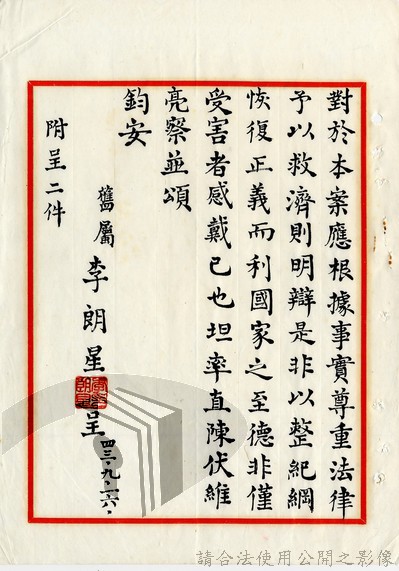 對於本案應根據事實尊重法律
予以救濟則明辯是非以整紀綱
恢復正義而利國家之至德非僅
受害者感戴已也坦率直陳伏維
亮察並頌
鈞安
舊屬李朗星呈四三.九.二六.
附呈二件
請合法使用公開之影像